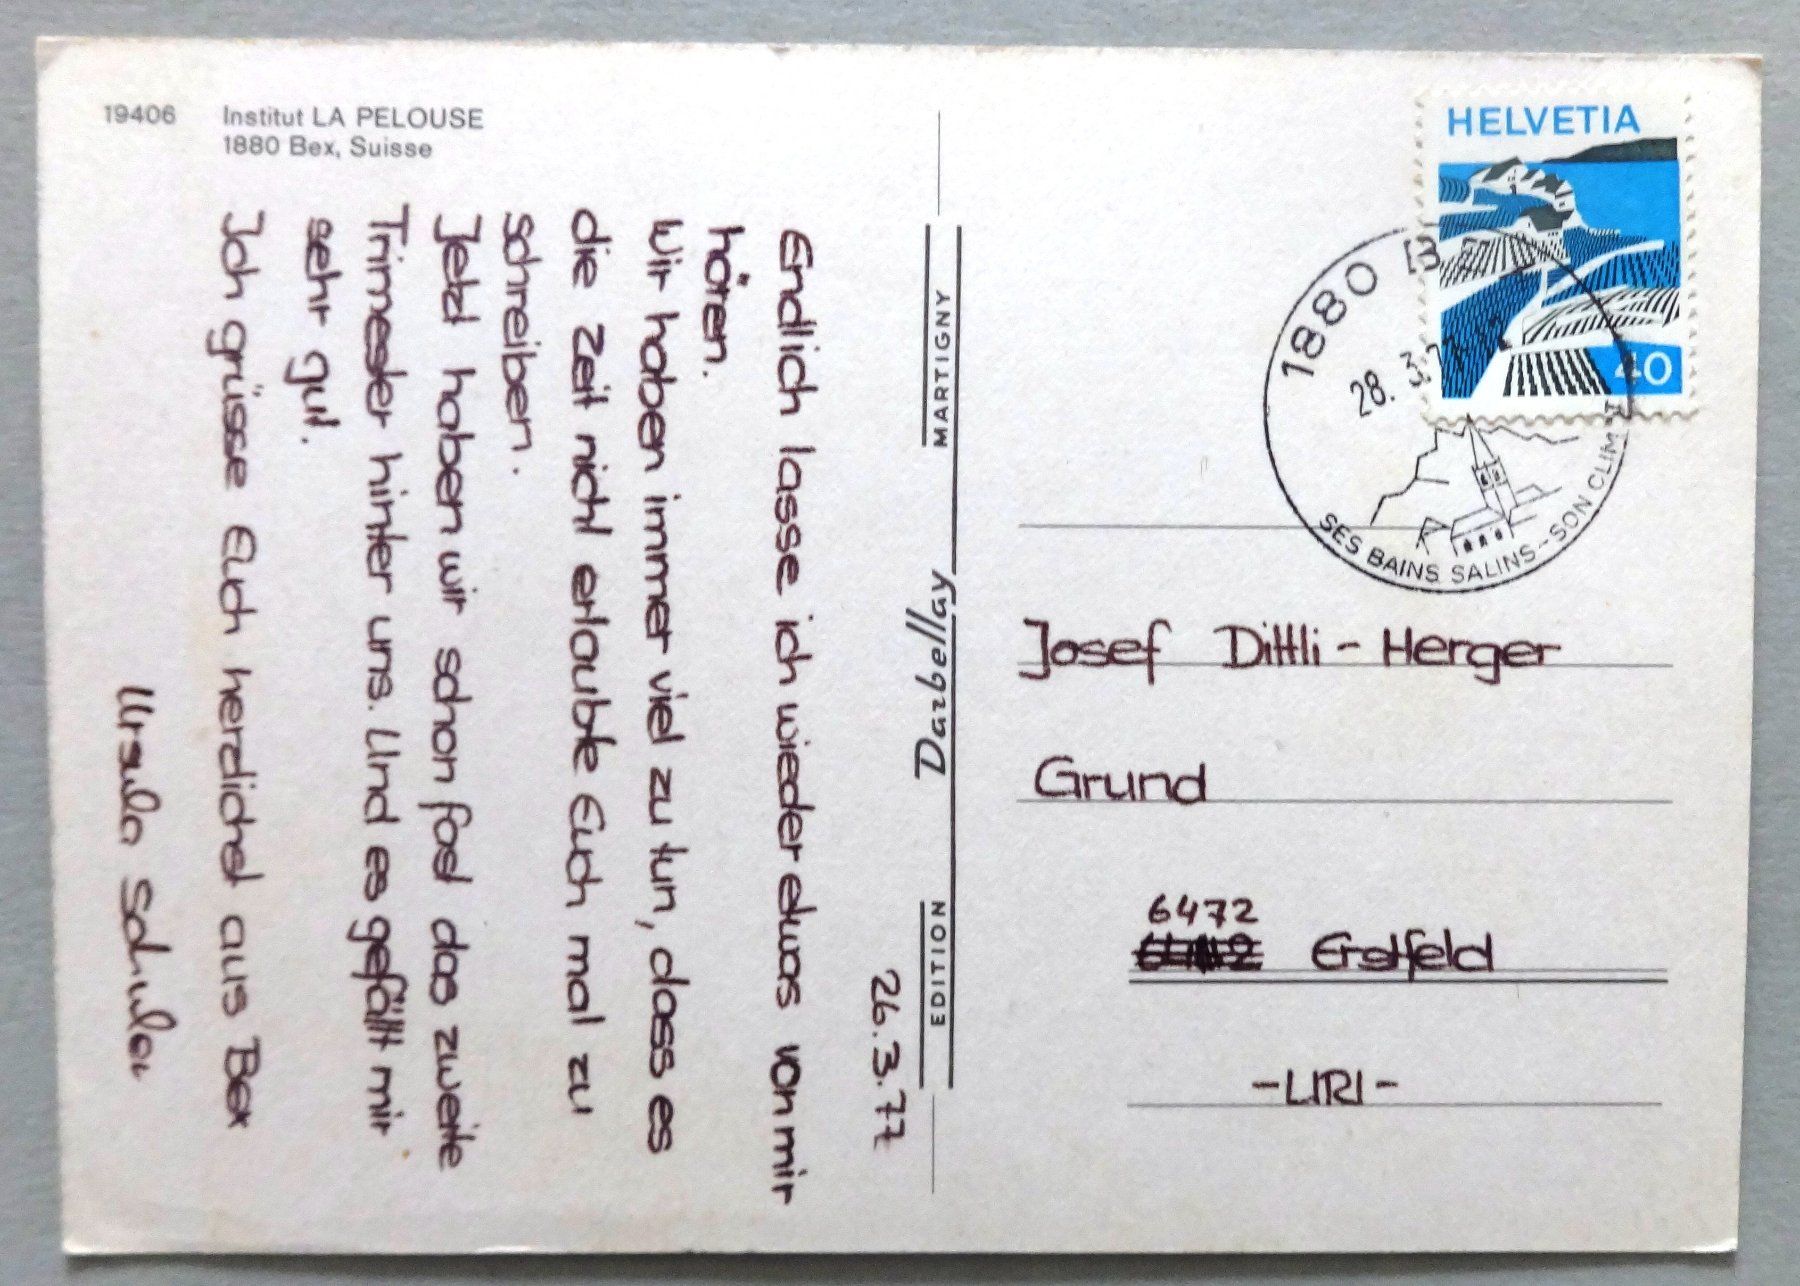 19406 Institut LA PELOUSE
1880 Bex, Suisse
26.3.77
Endlich lasse ich wieder etwas von mir
hören.
Wir haben immer viel zu tun, dass es
die Zeit nicht erlaubte Euch mal zu
schreiben.
Jetzt haben wir schon fast das zweite
Trimester hinter uns. Und es gefällt mir
sehr gut.
Ich grüsse Euch herzlichst aus Bex
Ursula
EDITION Darbellay MARTIGNY
HELVETIA
40
1880 B
28. 3. 77
SES BAINS SALINS - SON CLIM
Josef Dittli - Herger
Grund
6472
Erstfeld
- URI -